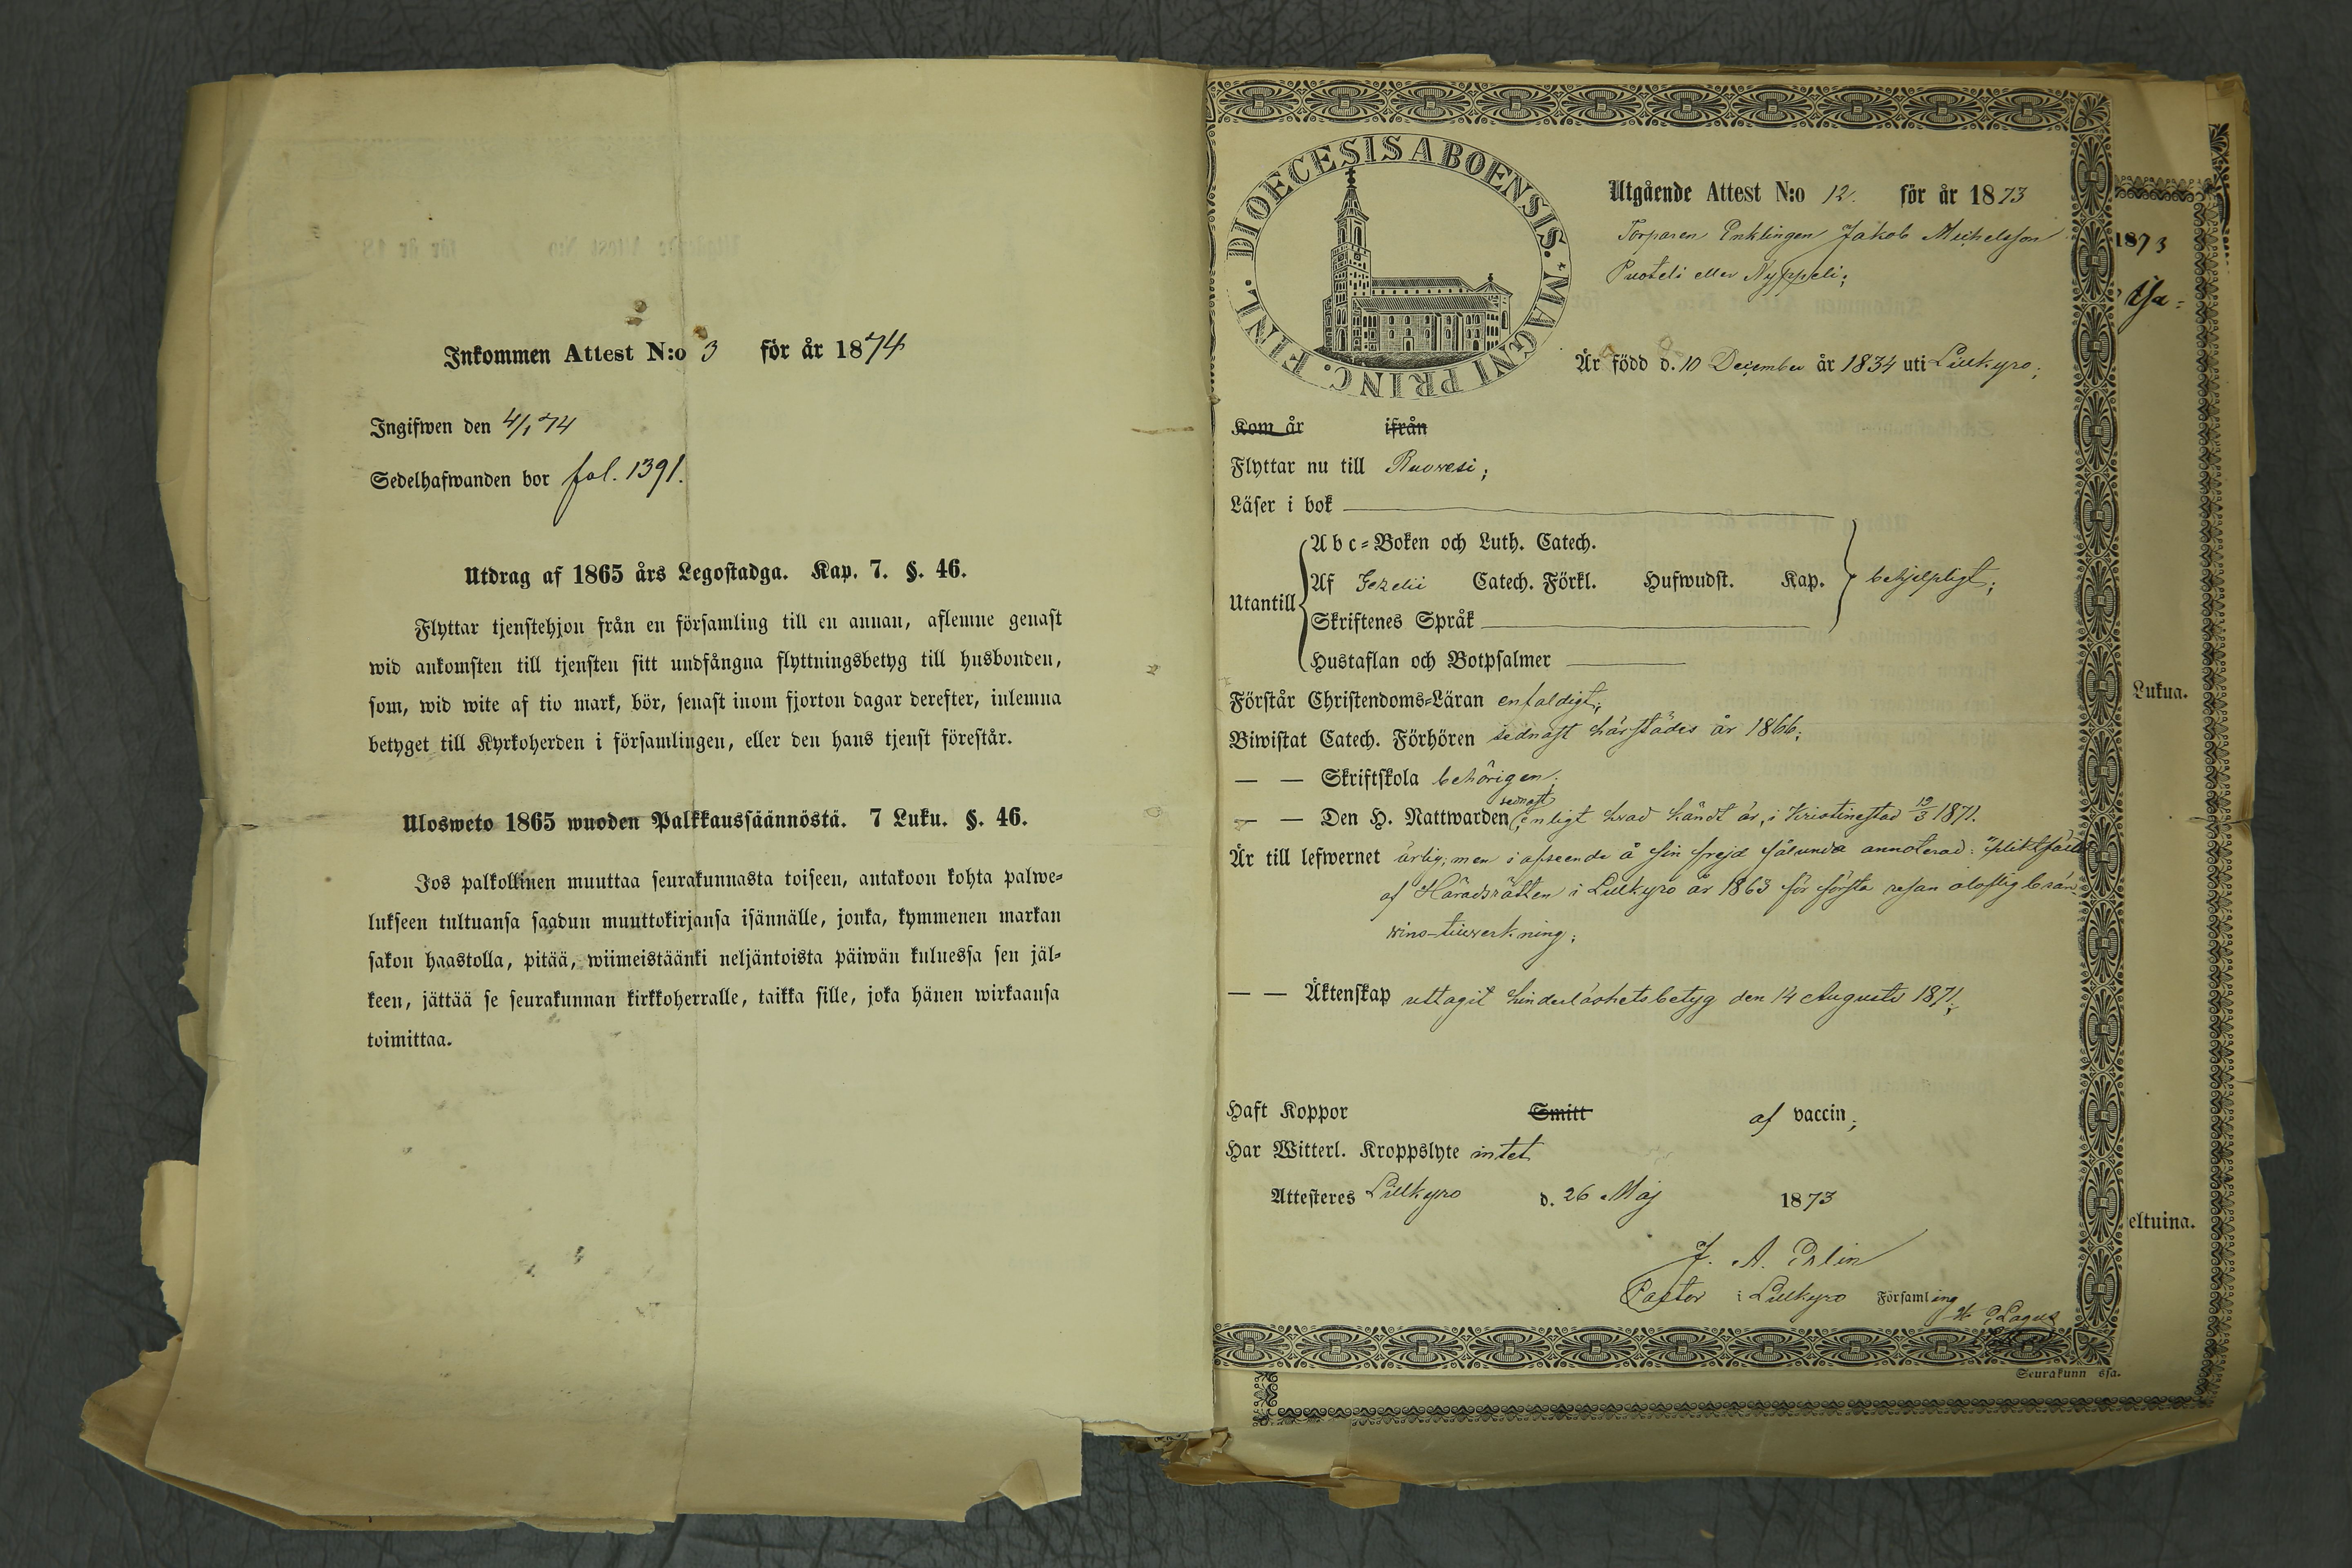 Inkommen Attest N:o 3 för år 1874
Ingifwen den 4/1 74
Sedelhafwanden bor fol. 1391.
Utdrag af 1865 års Legostadga. Kap. 7. §. 46.
Flyttar tjenstehjon från en församling till en annan, aflemne genast
wid ankomsten till tjensten sitt undfångna flyttningsbetyg till husbonden,
som, wid wite af tio mark, bör, senast inom fjorton dagar derefter, inlemna
betyget till Kyrkoherden i församlingen, eller den hans tjenst förestår.
Ulosweto 1865 wuoden Palkkaussäännöstä. 7 Luku. §. 46.
Jos palkollinen muuttaa seurakunnasta toiseen, antakoon kohta palwe-
lukseen tultuansa saadun muuttokirjansa isännälle, jonka, kymmenen markan
sakon haastolla, pitää, wiimeistäänki neljäntoista päiwän kuluessa sen jäl-
keen, jättää se seurakunnan kirkkoherralle, taikka sille, joka hänen wirkaansa
toimittaa.
DIOECESIS ABOENSIS. * MAGNI PRINC. FINL.
Utgående Attest N:o 12. för år 1873
Torparen Enklingen Jakob Michelsson
eller Nyppeli;
Är född d. 10 December år 1834 uti Lillkyro;
Kom år ifrån
Flyttar nu till Ruovesi;
Läser i bok
Utantill
Abc-Boken och Luth. Catech.
Af Gezelii Catech. Förkl. Hufwudst. Kap. behjelpligt;
Skriftenes Språk
Hustaflan och Botpsalmer
Förstår Christendoms-Läran enfaldigt;
Biwistat Catech. Förhören sednast härstädes år 1866;
— — Skriftskola behörigen;
— — Den H. Nattwarden, sednast enligt hvad kändt är, i Kristinestad 19/3 1871.
Är till lefwernet ärlig; men i afseende å sin frejd sålunda annoterad: "pliktfäld
af Häradsrätten i Lillkyro år 1863 för första resan olaflig brän-
vins-tillverkning;
— — Äktenskap uttagit hinderlöshetsbetyg den 14 Augusti 1871;
Haft Koppor Smitt af vaccin;
Har Witterl. Kroppslyte intet
Attesteres Lillkyro d. 26 Maj 1873
J. A.
Pastor i Lillkyro Församling
Lagus
1873
Lukua.
eltuina.
Seurakunn ssa.